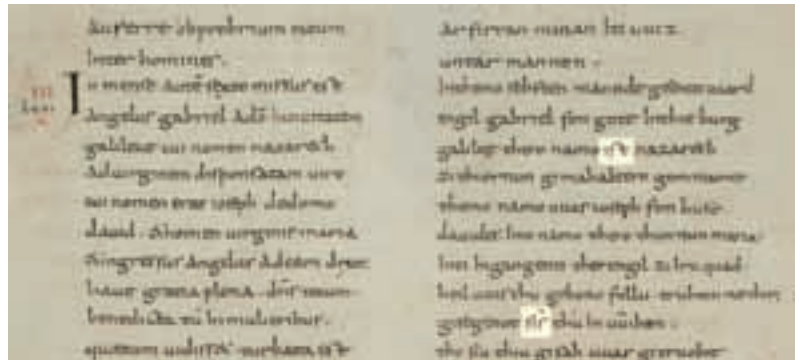 auferre obprobrium meum
Inter homines.
VII
In mense autē sexto missus est
Angelus gabriel A dō In ciuitatem
galileae cui nomen nazareth
Ad uirginem desponsatam uiro
cui nomen erat ioseph de domo
dauid. & nomen uirginis maria
& ingressus Angelus Ad eam dixit
haue gratia plena. dn̄s tecum
benedicta tū In mulieribus.
quae cum uidisset turbata est
arfirran minan Itiuuiz
untar mannon.
In themo sehsten manude uuard
engil gabriel fon gote In thie burg
galilee thero namo ist nazareth
zi thiornun gimahaltero gommanne
themo namo uuas ioseph fon huse
dauides Inti namo thero thiornun maria
Inti ingangenti ther engil zi iru quad
heil uuis thu gebono follu truhtin
gisegenot sīs thū In uuibun.
tho siu thiu gisah uuas gitruobit